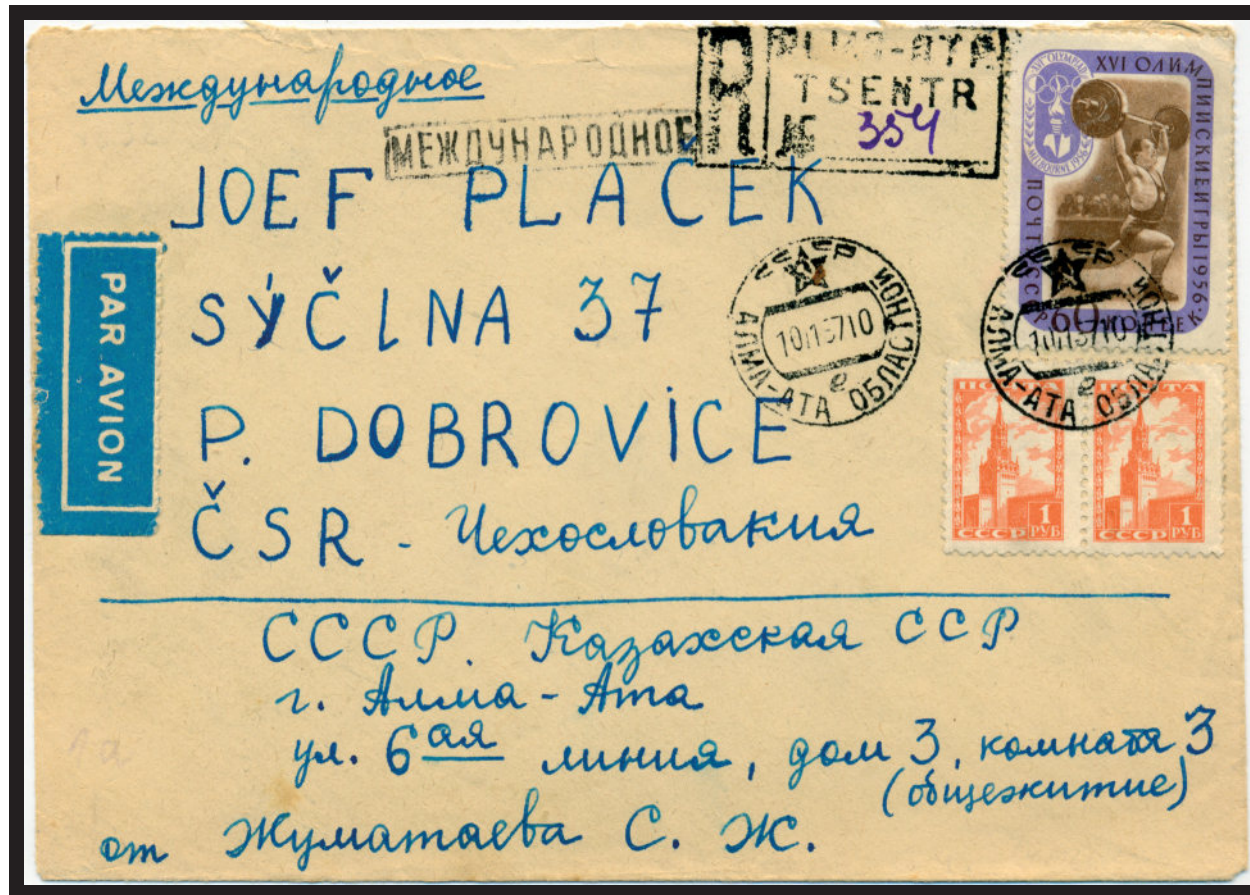 Международное
МЕЖДУНАРОДНОЕ
R ALMA-ATA
TSENTR
№ 354
XVI OLYMPIAD
MELBOURNE 1956
XVI ОЛИМПИЙСКИЕ ИГРЫ 1956
ПОЧТА СССР 60 КОПЕЕК
JOEF PLAČEK
SÝČINA 37
P. DOBROVİCE
ČSR - Чехословакия
PAR AVION
АЛМА-АТА ОБЛАСТНОЙ
е
АЛМА-АТА ОБЛАСТНОЙ
е
ПОЧТА
1
СССР РУБ
ПОЧТА
1
СССР РУБ
СССР. Казахская ССР
г. Алма-Ата
ул. 6ая линия, дом 3, комната 3
(общежитие)
от Жуматаева С. Ж.
1а